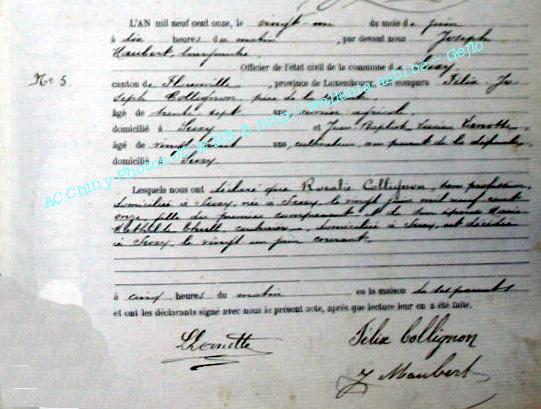 L'AN mil neuf cent onze, le vingt-un du mois de juin
à dix heures du matin, par devant nous Joseph
Maubert, bourgmestre
Officier de l'état civil de la commune de Suxy,
N° 5.
canton de Florenville, province de Luxembourg, comparu Félix Jo
seph Collignon, père de la
âgé de trente sept ans, ouvrier agricole,
domicilié à Suxy et Jean Baptiste Lucien
âgé de vingt ans, cultivateur, non parent de la défunte,
domicilié à Suxy
Lesquels nous ont déclaré que Rosalie Collignon, sans profession,
domiciliée à Suxy, née à Suxy, le vingt juin mil neuf cent
onze, fille du premier comparant et de son épouse Marie
domiciliée à Suxy, est décédée
à Suxy, le vingt un juin courant.
à cinq heures du matin en la maison de ses parents
et ont les déclarants signé avec nous le présent acte, après que lecture leur en a été faite.
Félix Collignon
J Maubert